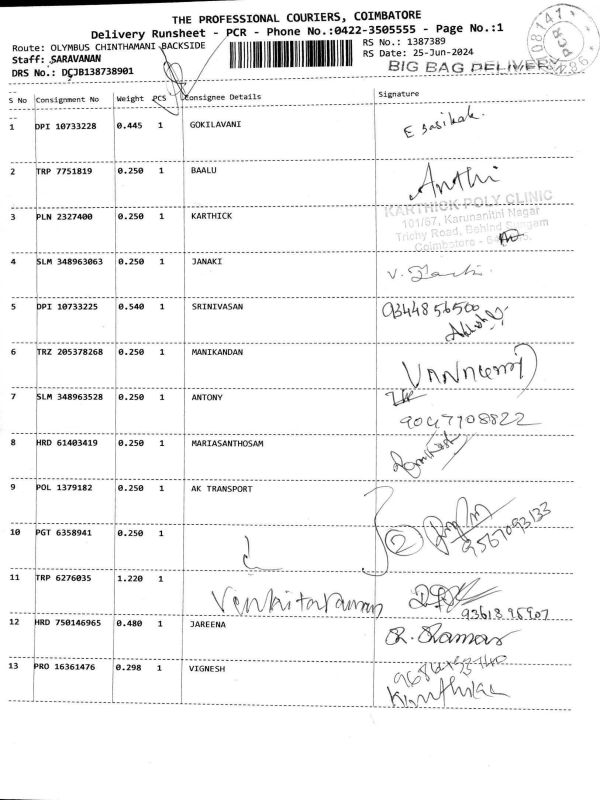 THE PROFESSIONAL COURIERS, COIMBATORE
Delivery Runsheet - PCR - Phone No.:0422-3505555 - Page No.:1
Route: OLYMBUS CHINTHAMANI BACKSIDE
RS No.: 1387389
Staff: SARAVANAN
RS Date: 25-Jun-2024
DRS No.: DCJB138738901
BIG BAG DELIVERY
PCR
S No Consignment No Weight PCS Consignee Details Signature
1 DPI 10733228 0.445 1 GOKILAVANI E Sasikala.
2 TRP 7751819 0.250 1 BAALU Anthi
3 PLN 2327400 0.250 1 KARTHICK
KARTHICK POLY CLINIC
101/67, Karunanithi Nagar
Trichy Road, Behind Sungam
Coimbatore -
4 SLM 348963063 0.250 1 JANAKI V.
5 DPI 10733225 0.540 1 SRINIVASAN 9344856500
6 TRZ 205378268 0.250 1 MANIKANDAN
7 SLM 348963528 0.250 1 ANTONY
9047908822
8 HRD 61403419 0.250 1 MARIASANTHOSAM
9 POL 1379182 0.250 1 AK TRANSPORT
10 PGT 6358941 0.250 1 2 9567093133
11 TRP 6276035 1.220 1 Venkitaraman
12 HRD 750146965 0.480 1 JAREENA
13 PRO 16361476 0.298 1 VIGNESH